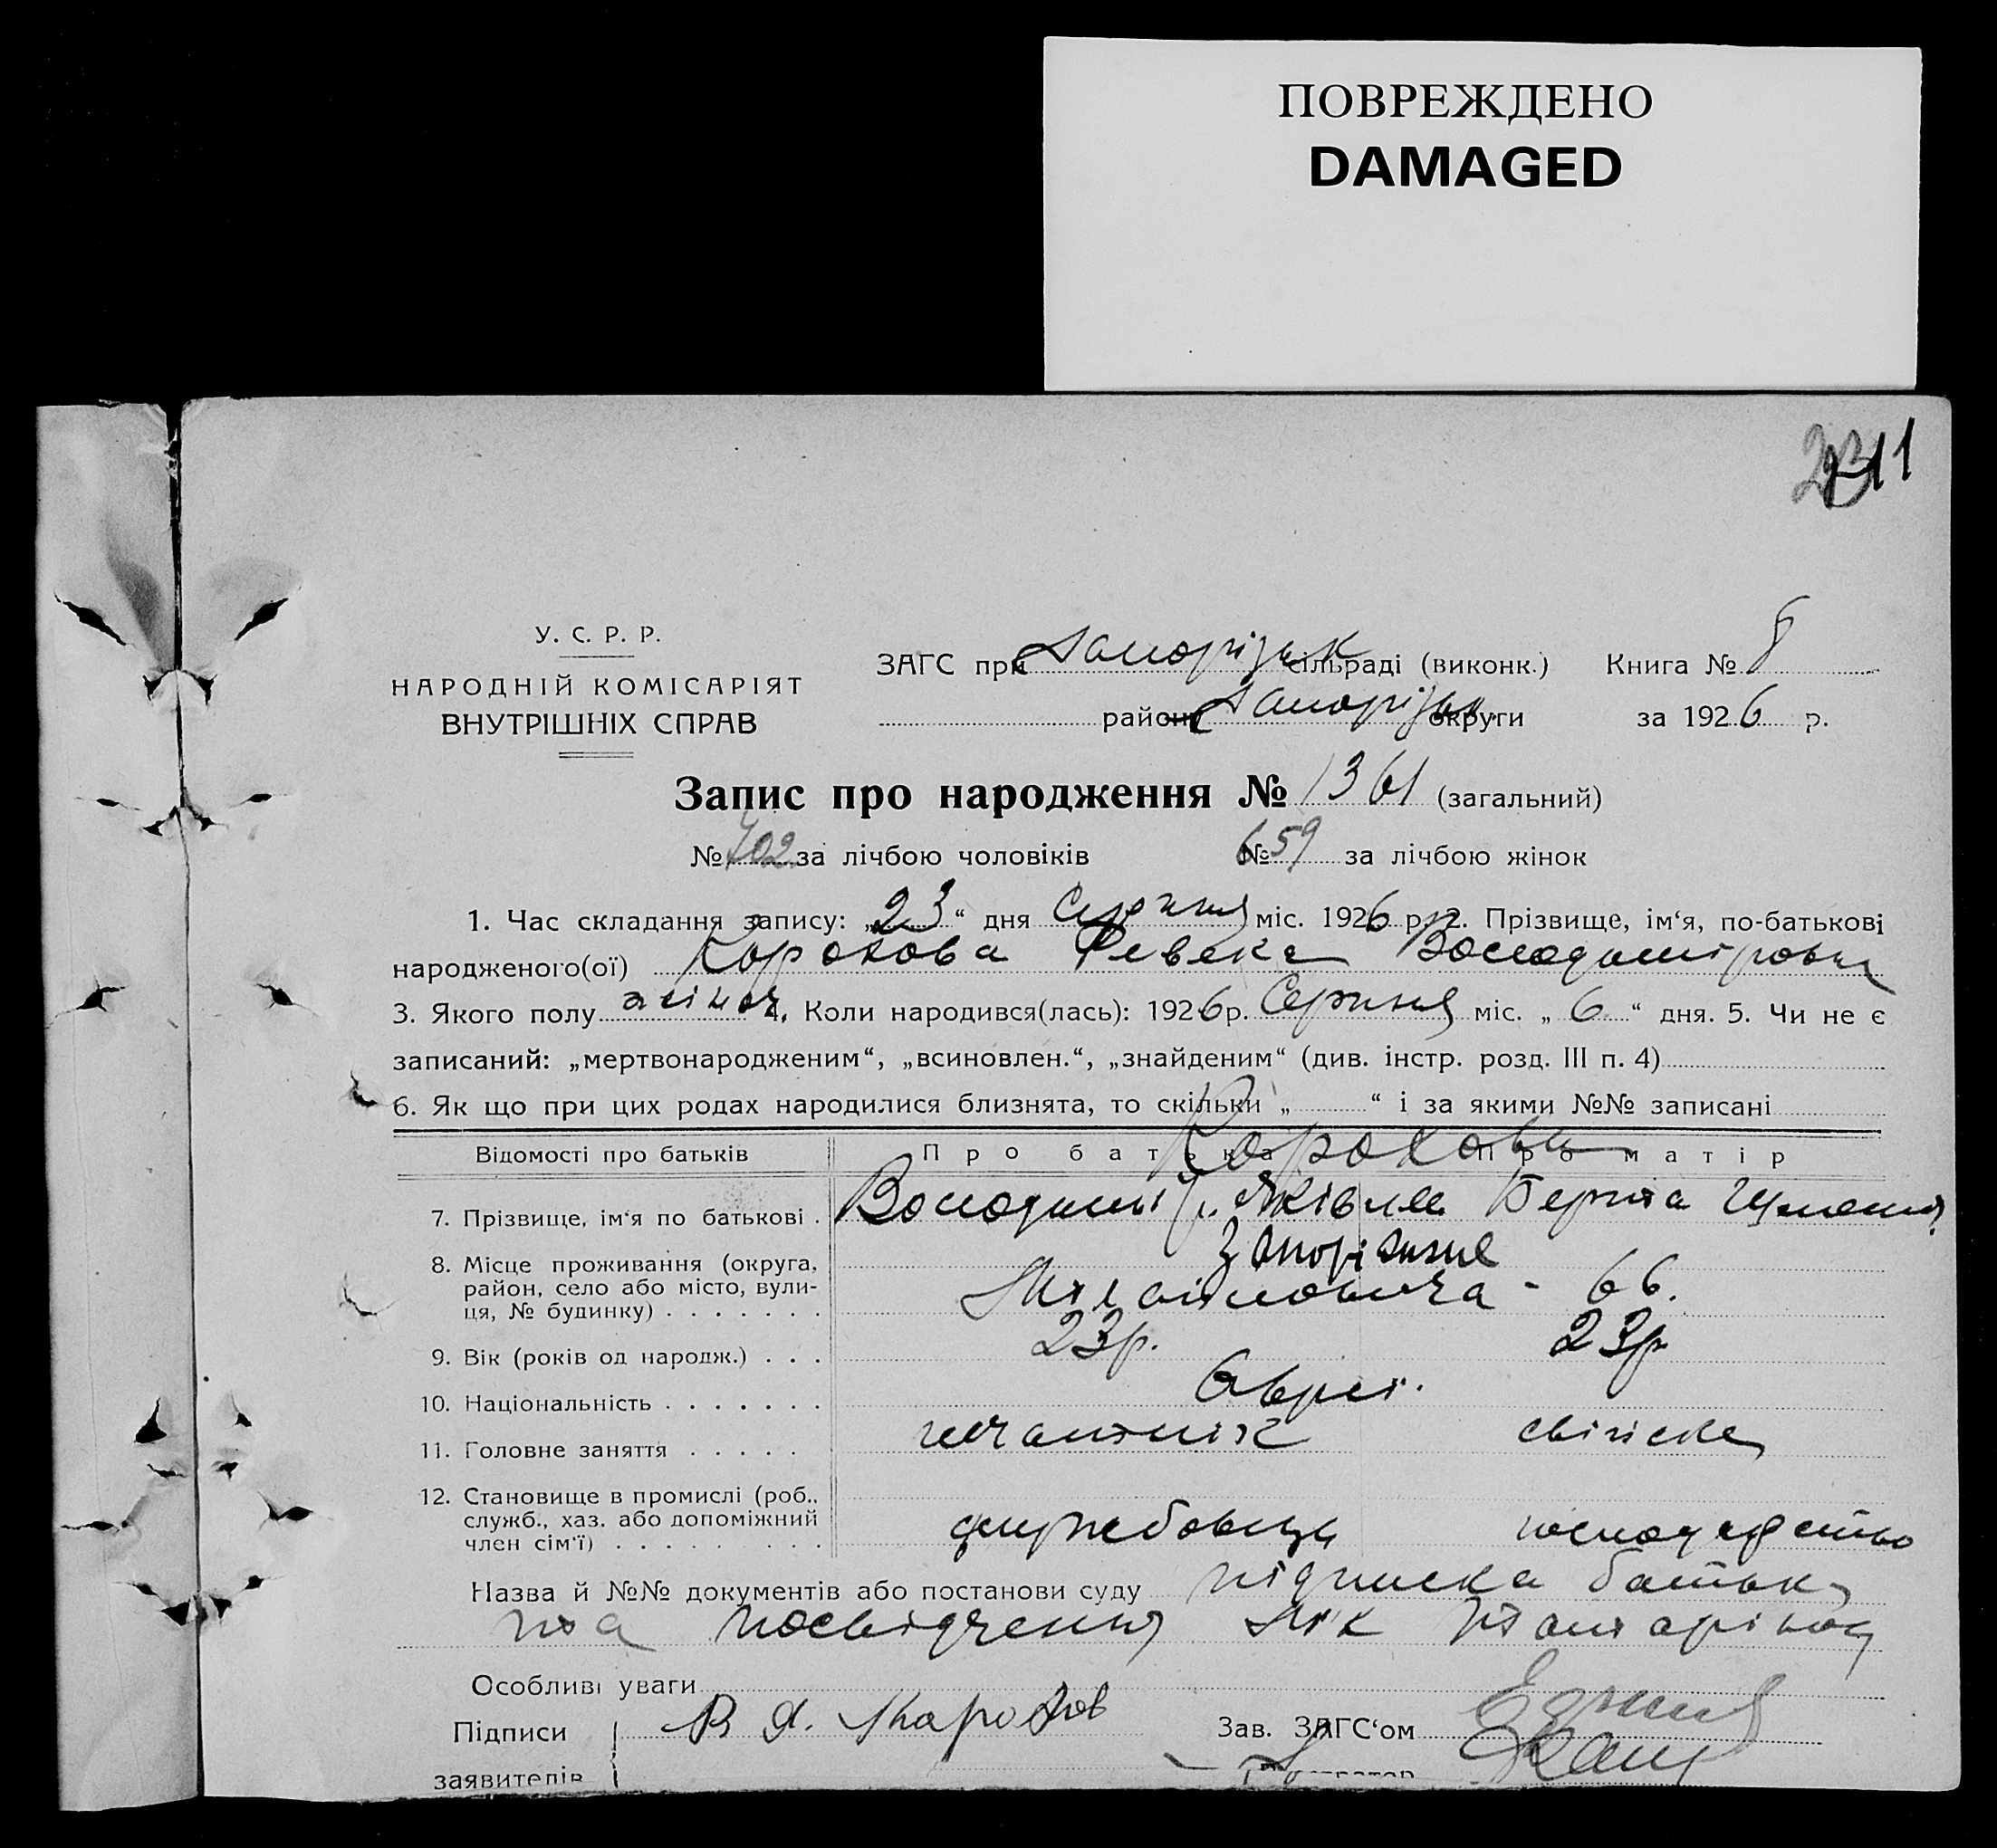 ПОВРЕЖДЕНО
DAMAGED
11
У. С. Р. Р.
НАРОДНІЙ КОМІСАРІЯТ
ВНУТРІШНІХ СПРАВ
ЗАГС при Запорізьк сільраді (виконк.) Книга № 8
район Запорізьк. округи за 1926 р.
Запис про народження № 1361 (загальний)
№ 702 за лічбою чоловіків № 659 за лічбою жінок
1. Час складання запису: „23“ дня Серпня міс. 1926 р. 2. Прізвище, ім‘я, по-батькові
народженого(ої) Ревека Володимировна
3. Якого полу жіноч. 4. Коли народився(лась): 1926 р. Серпня міс. „ 6 “ дня. 5. Чи не є
записаний: „мертвонародженим“, „всиновлен.“, „знайденим“ (див. інстр. розд. III п. 4)
6. Як що при цих родах народилися близнята, то скільки „ “ і за якими №№ записані
Відомості про батьків Про батька Про матір
7. Прізвище, ім‘я по батькові . Володимір Яковлев Берта
8. Місце проживання (округа, Запоріжжя
район, село або місто, вули-
ця, № будинку) . . . . . . . - 66.
9. Вік (років од народж.) . . . 23р. 23р
10. Національність . . . . . . . Євреї.
11. Головне заняття . . . . .
12. Становище в промислі (роб.,
служб., хаз. або допоміжний
член сім‘ї) . . . . . . . . . службовець господарство
Назва й №№ документів або постанови суду підписка батьк
та посвідчення
Особливі уваги
Підписи В Я. Зав. ЗАГС‘ом
заявителів